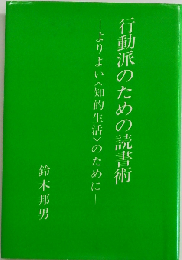 行動派のための読書術
―よりよい〈知的生活〉のために―
鈴木邦男